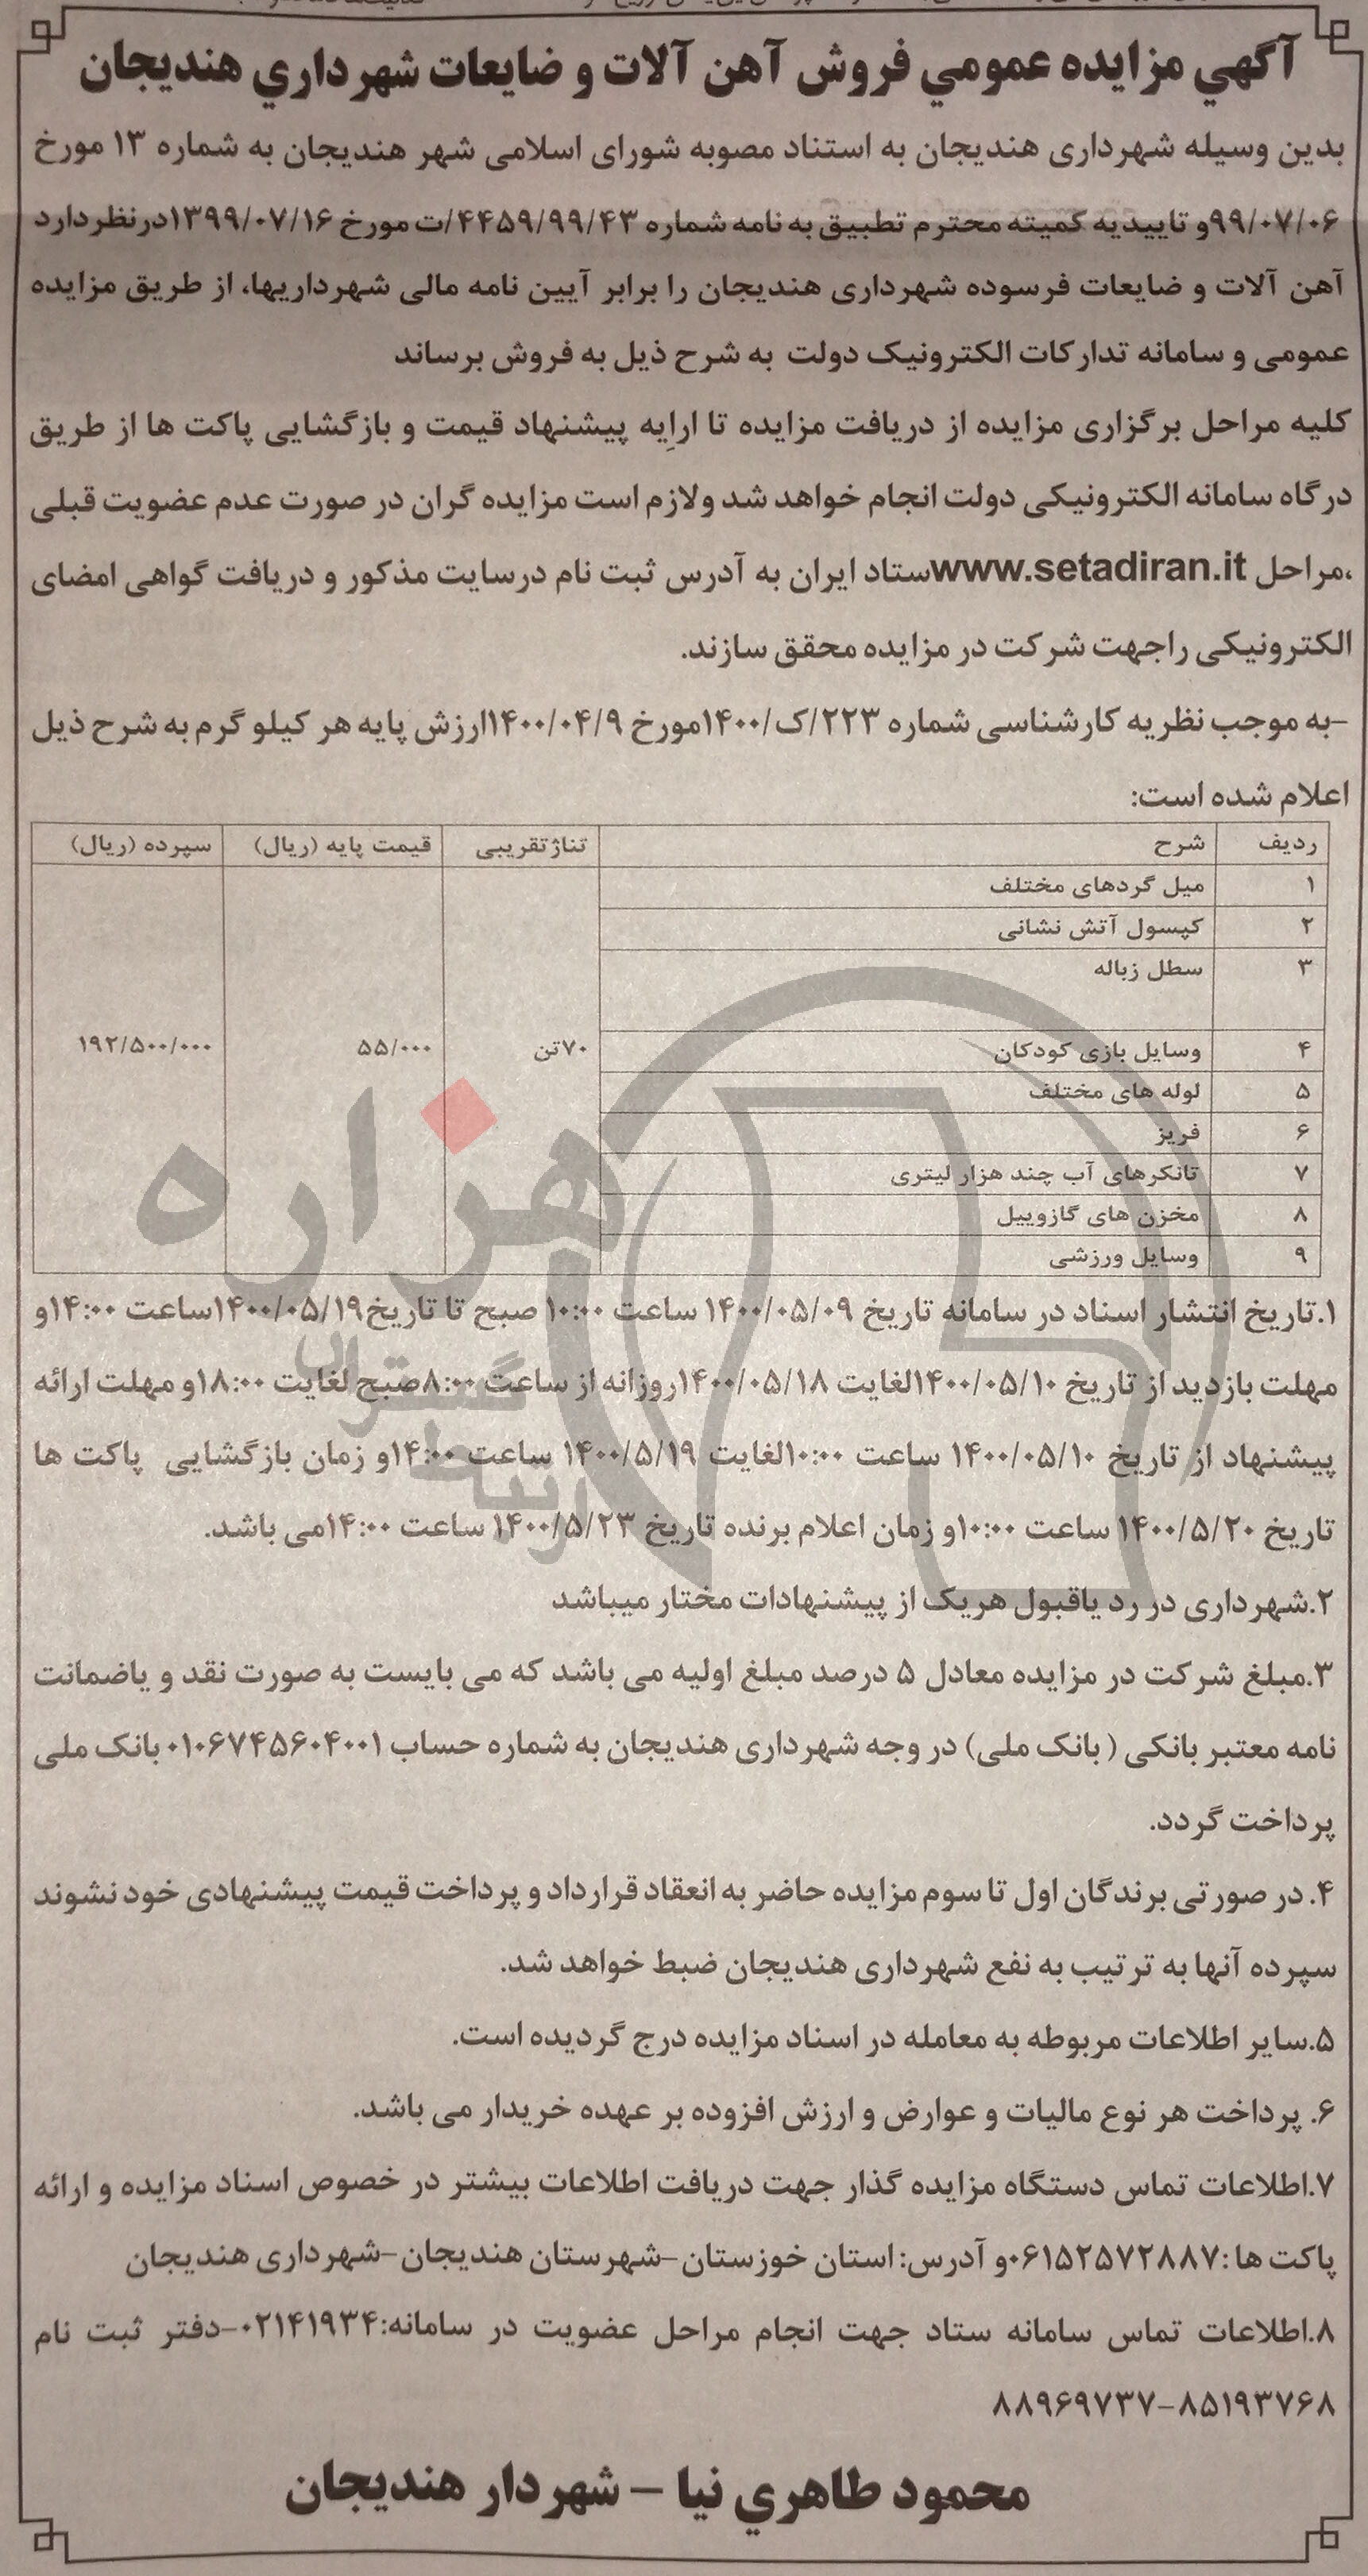 آگهي مزايده عمومي فروش آهن آلات و ضايعات شهرداري هنديجان
بدین وسیله شهرداری هندیجان به استناد مصوبه شورای اسلامی شهر هندیجان به شماره ۱۳ مورخ
۹۹/۰۷/۰۶و تاییدیه کمیته محترم تطبیق به نامه شماره ۴۴۵۹/۹۹/۴۳/ت مورخ ۱۳۹۹/۰۷/۱۶درنظردارد
آهن آلات و ضایعات فرسوده شهرداری هندیجان را برابر آیین نامه مالی شهرداریها، از طریق مزایده
عمومی و سامانه تدارکات الکترونیک دولت به شرح ذیل به فروش برساند
کلیه مراحل برگزاری مزایده از دریافت مزایده تا اراِیه پیشنهاد قیمت و بازگشایی پاکت ها از طریق
درگاه سامانه الکترونیکی دولت انجام خواهد شد ولازم است مزایده گران در صورت عدم عضویت قبلی
،مراحل www.setadiran.itستاد ایران به آدرس ثبت نام درسایت مذکور و دریافت گواهی امضای
الکترونیکی راجهت شرکت در مزایده محقق سازند.
-به موجب نظریه کارشناسی شماره ۲۲۳/ک/۱۴۰۰مورخ ۱۴۰۰/۰۴/۹ارزش پایه هر کیلو گرم به شرح ذیل
اعلام شده است:
ردیف شرح تناژتقریبی قیمت پایه (ریال) سپرده (ریال)
۱ میل گردهای مختلف
۲ کپسول آتش نشانی
۳ سطل زباله
۴ وسایل بازی کودکان ۷۰تن ۵۵/۰۰۰ ۱۹۲/۵۰۰/۰۰۰
۵ لوله های مختلف
۶ فریز
۷ تانکرهای آب چند هزار لیتری
۸ مخزن های گازوییل
۹ وسایل ورزشی
هزاره
۱.تاریخ انتشار اسناد در سامانه تاریخ ۱۴۰۰/۰۵/۰۹ ساعت ۱۰:۰۰ صبح تا تاریخ۱۴۰۰/۰۵/۱۹ساعت ۱۴:۰۰و
مهلت بازدید از تاریخ ۱۴۰۰/۰۵/۱۰لغایت ۱۴۰۰/۰۵/۱۸روزانه از ساعت ۸:۰۰صبح لغایت ۱۸:۰۰و مهلت ارائه
پیشنهاد از تاریخ ۱۴۰۰/۰۵/۱۰ ساعت ۱۰:۰۰لغایت ۱۴۰۰/۵/۱۹ ساعت ۱۴:۰۰و زمان بازگشایی پاکت ها
تاریخ ۱۴۰۰/۵/۲۰ ساعت ۱۰:۰۰و زمان اعلام برنده تاریخ ۱۴۰۰/۵/۲۳ ساعت ۱۴:۰۰می باشد.
۲.شهرداری در رد یاقبول هریک از پیشنهادات مختار میباشد
۳.مبلغ شرکت در مزایده معادل ۵ درصد مبلغ اولیه می باشد که می بایست به صورت نقد و یاضمانت
نامه معتبر بانکی ( بانک ملی) در وجه شهرداری هندیجان به شماره حساب ۰۱۰۶۷۴۵۶۰۴۰۰۱ بانک ملی
پرداخت گردد.
۴. در صورتی برندگان اول تا سوم مزایده حاضر به انعقاد قرارداد و پرداخت قیمت پیشنهادی خود نشوند
سپرده آنها به ترتیب به نفع شهرداری هندیجان ضبط خواهد شد.
۵.سایر اطلاعات مربوطه به معامله در اسناد مزایده درج گردیده است.
۶. پرداخت هر نوع مالیات و عوارض و ارزش افزوده بر عهده خریدار می باشد.
۷.اطلاعات تماس دستگاه مزایده گذار جهت دریافت اطلاعات بیشتر در خصوص اسناد مزایده و ارائه
پاکت ها :۰۶۱۵۲۵۷۲۸۸۷و آدرس: استان خوزستان-شهرستان هندیجان-شهرداری هندیجان
۸.اطلاعات تماس سامانه ستاد جهت انجام مراحل عضویت در سامانه:۰۲۱۴۱۹۳۴-دفتر ثبت نام
۸۸۹۶۹۷۳۷-۸۵۱۹۳۷۶۸
محمود طاهري نيا - شهردار هنديجان